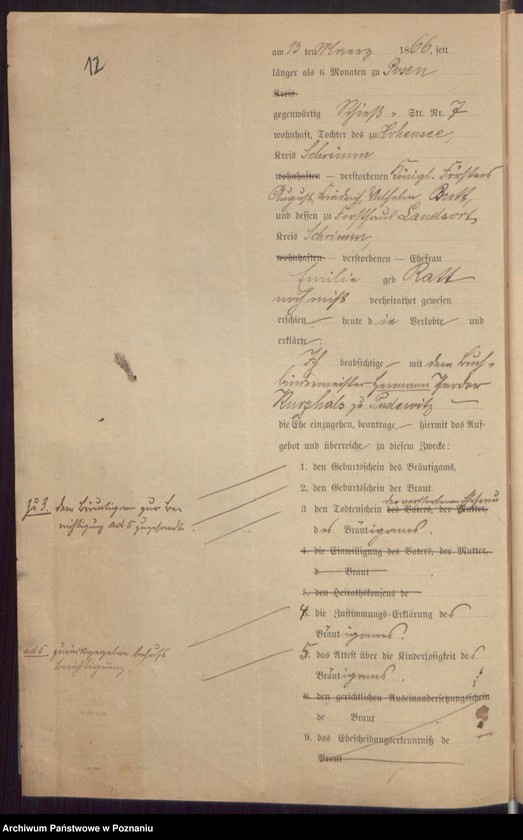 12
am 13 ten Maerz 1866, seit
länger als 6 Monaten zu Posen
Kreis
gegenwärtig Schieß- Str. Nr. 7
wohnhaft, Tochter des zu Hohensee,
Kreis Schrimm
wohnhaften — verstorbenen Königl. Försters
August Friedrich Wilhelm
und dessen zu Forsthaus Landsort,
Kreis Schrimm,
wohnhaften — verstorbenen — Ehefrau
Emilie geb Ratt
noch nicht verheirathet gewesen
erschien heute die Verlobte und
erklärte
Ich beabsichtige mit dem Buch-
bindermeister Hermann
Kurzhals zu Pudewitz
die Ehe einzugehen, beantrage hiermit das Auf-
gebot und überreiche zu diesem Zwecke:
1. den Geburtsschein des Bräutigams,
2. den Geburtsschein der Braut
der verstorbenen Ehefrau
3 den Todtenschein des Vaters, der Mutter,
des Bräutigams.
4. die Einwilligung des Vaters, der Mutter,
d Braut
5. den Heirathskonsens de
4. die Zustimmungs-Erklärung des
Bräutigams.
5. das Attest über die Kinderlosigkeit des
Bräutigams.
8. den gerichtlichen Auseinandersetzungsschein
de Braut
9. das Ehescheidungserkenntniß de
Braut
zu 3. dem Bräutigam zur Be-
richtigung ad 5 zugesandt.
ad 5 zurückgegeben behufs
Berichtigung.
Archiwum Państwowe w Poznaniu